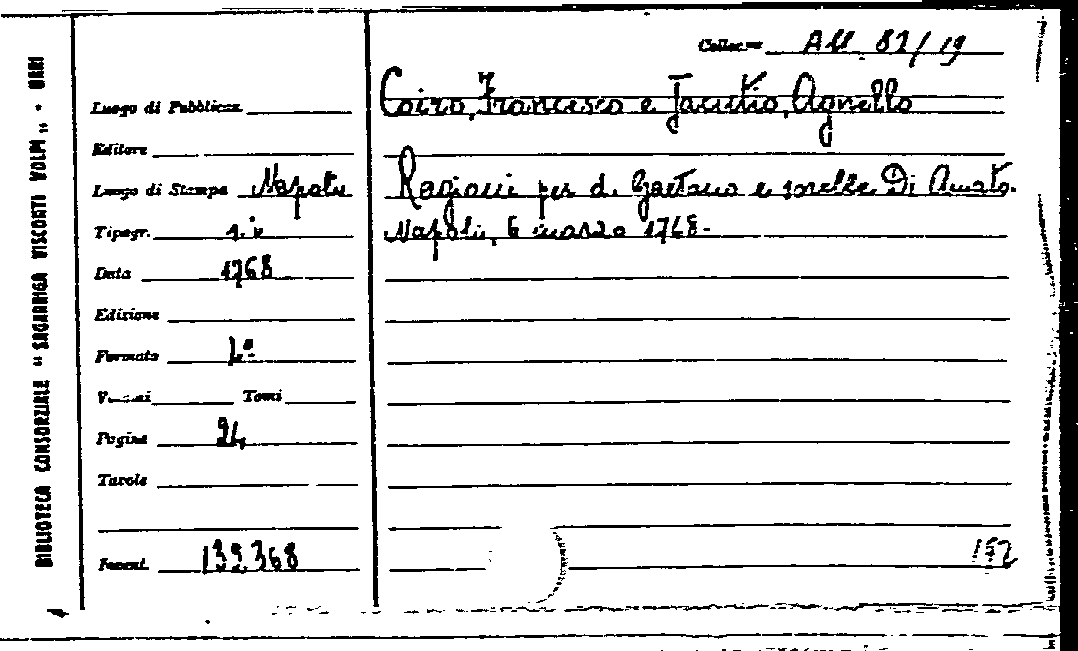 BIBLIOTECA CONSORZIALE "SAGARRIGA VISCONTI VOLPI" - BARI
Colloc.ne All 82/19
Luogo di Pubblicaz.
Editore
Luogo di Stampa Napoli
Tipogr.
Data 1768
Edizione
Formato 4°
Volumi Tomi
Pagine
Tavole
Invent. 139368
Coiro, Francesco e Jacutio, Agnello
Ragioni per d. Gaetano e sorelle Di Amato.
Napoli, 6 marzo 1768.
152